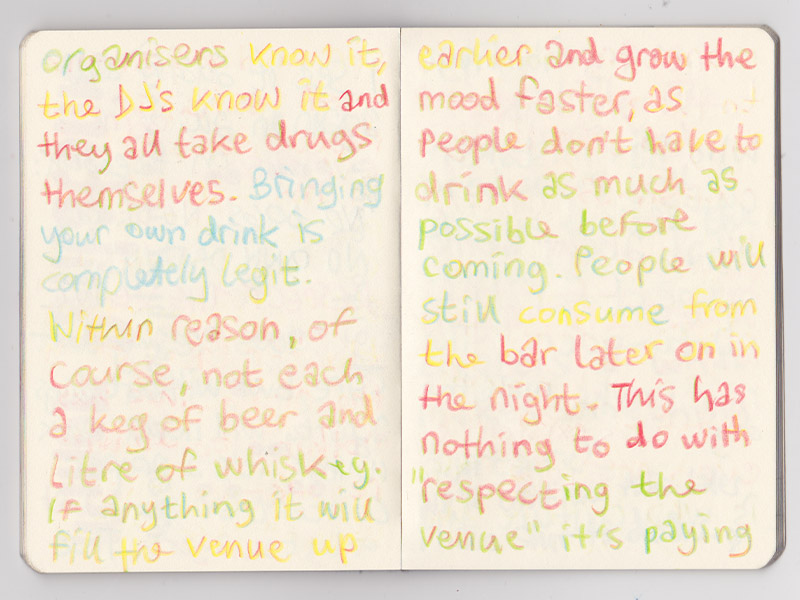 organisers know it,
the DJ's know it and
they all take drugs
themselves. Bringing
your own drink is
completely legit.
Within reason, of
course, not each
a keg of beer and
litre of whiskey.
If anything it will
fill the venue up
earlier and grow the
mood faster, as
people don't have to
drink as much as
possible before
coming. People will
still consume from
the bar later on in
the night. This has
nothing to do with
"respecting the
venue" it's paying